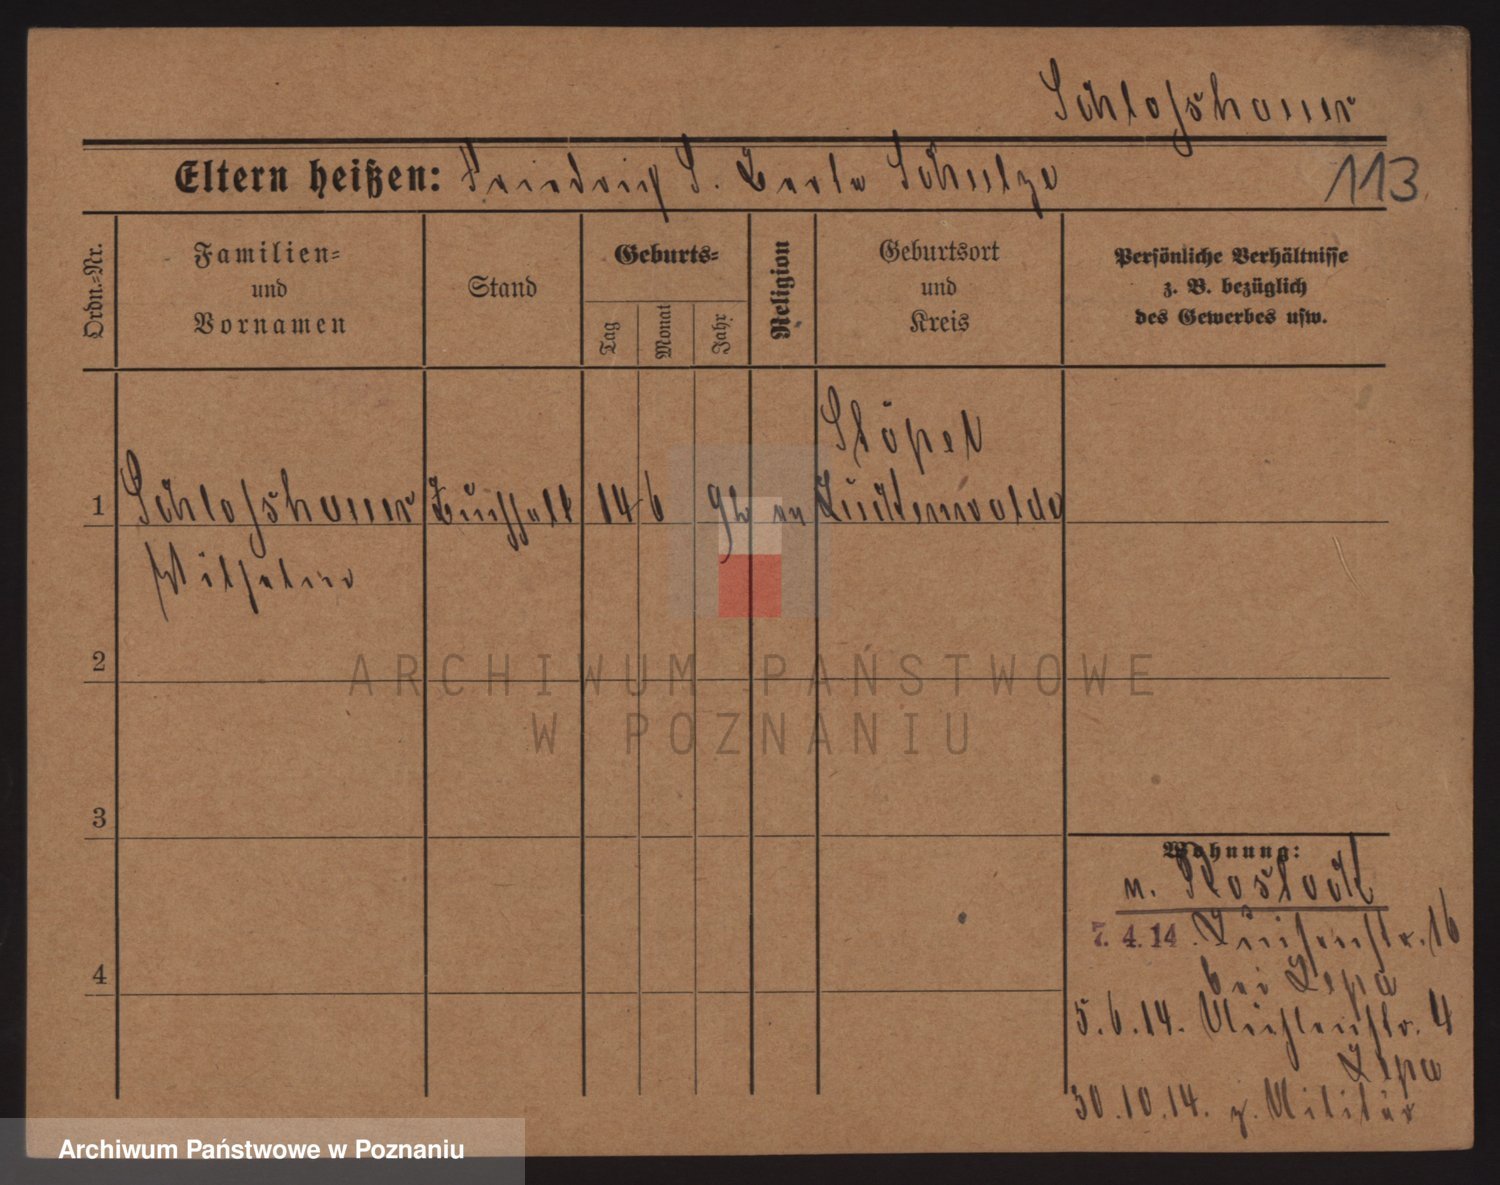 Schlosshauer
Eltern heißen: Friedrich S. Berta Schulze
113
Ordn.-Nr.
Familien-
und
Vornamen
Stand
Geburts-
Tag
Monat
Jahr
Religion
Geburtsort
und
Kreis
Persönliche Verhältnisse
z. B. bezüglich
des Gewerbes usw.
Stöpel
1 Schlosshauer Buchhalt 14 6 92 ev Luckenwalde
Wilhelm
2
3
4
Wohnung:
n. Rostock
7. 4. 14. Luisenstr. 16
bei Lepa
5. 6. 14. Mühlenstr. 4
Lepa
30. 10. 14. z. Militär
ARCHIWUM PAŃSTWOWE
W POZNANIU
Archiwum Państwowe w Poznaniu